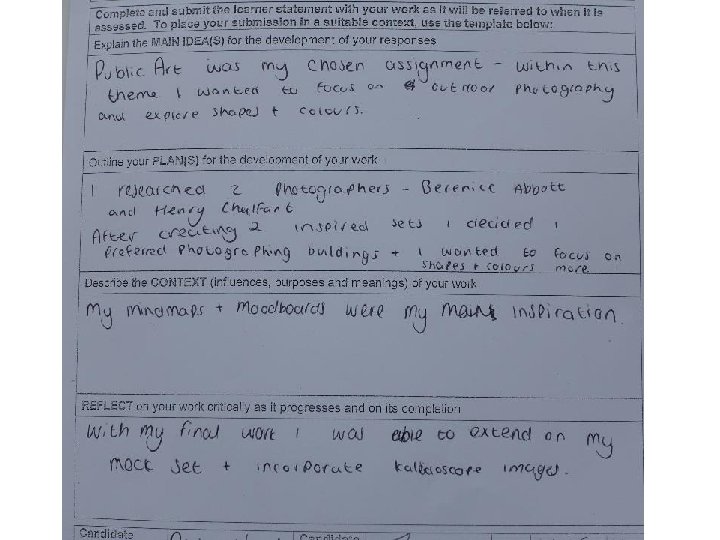 Complete and submit the learner statement with your work as it will be referred to when it is
assessed. To place your submission in a suitable context, use the template below:
Explain the MAIN IDEA(S) for the development of your responses
Public Art was my chosen assignment - within this
theme I wanted to focus on outdoor photography
and explore shapes + colours.
Outline your PLAN(S) for the development of your work
I researched 2 Photographers - Berenice Abbott
and Henry Chalfant
After creating 2 inspired sets I decided I
preferred photographing buildings + I wanted to focus on
shapes + colours more
Describe the CONTEXT (influences, purposes and meanings) of your work
My mindmaps + moodboards were my main inspiration.
REFLECT on your work critically as it progresses and on its completion
With my final work I was able to extend on my
mock set + incorporate kaleidoscope images.
Candidate Candidate